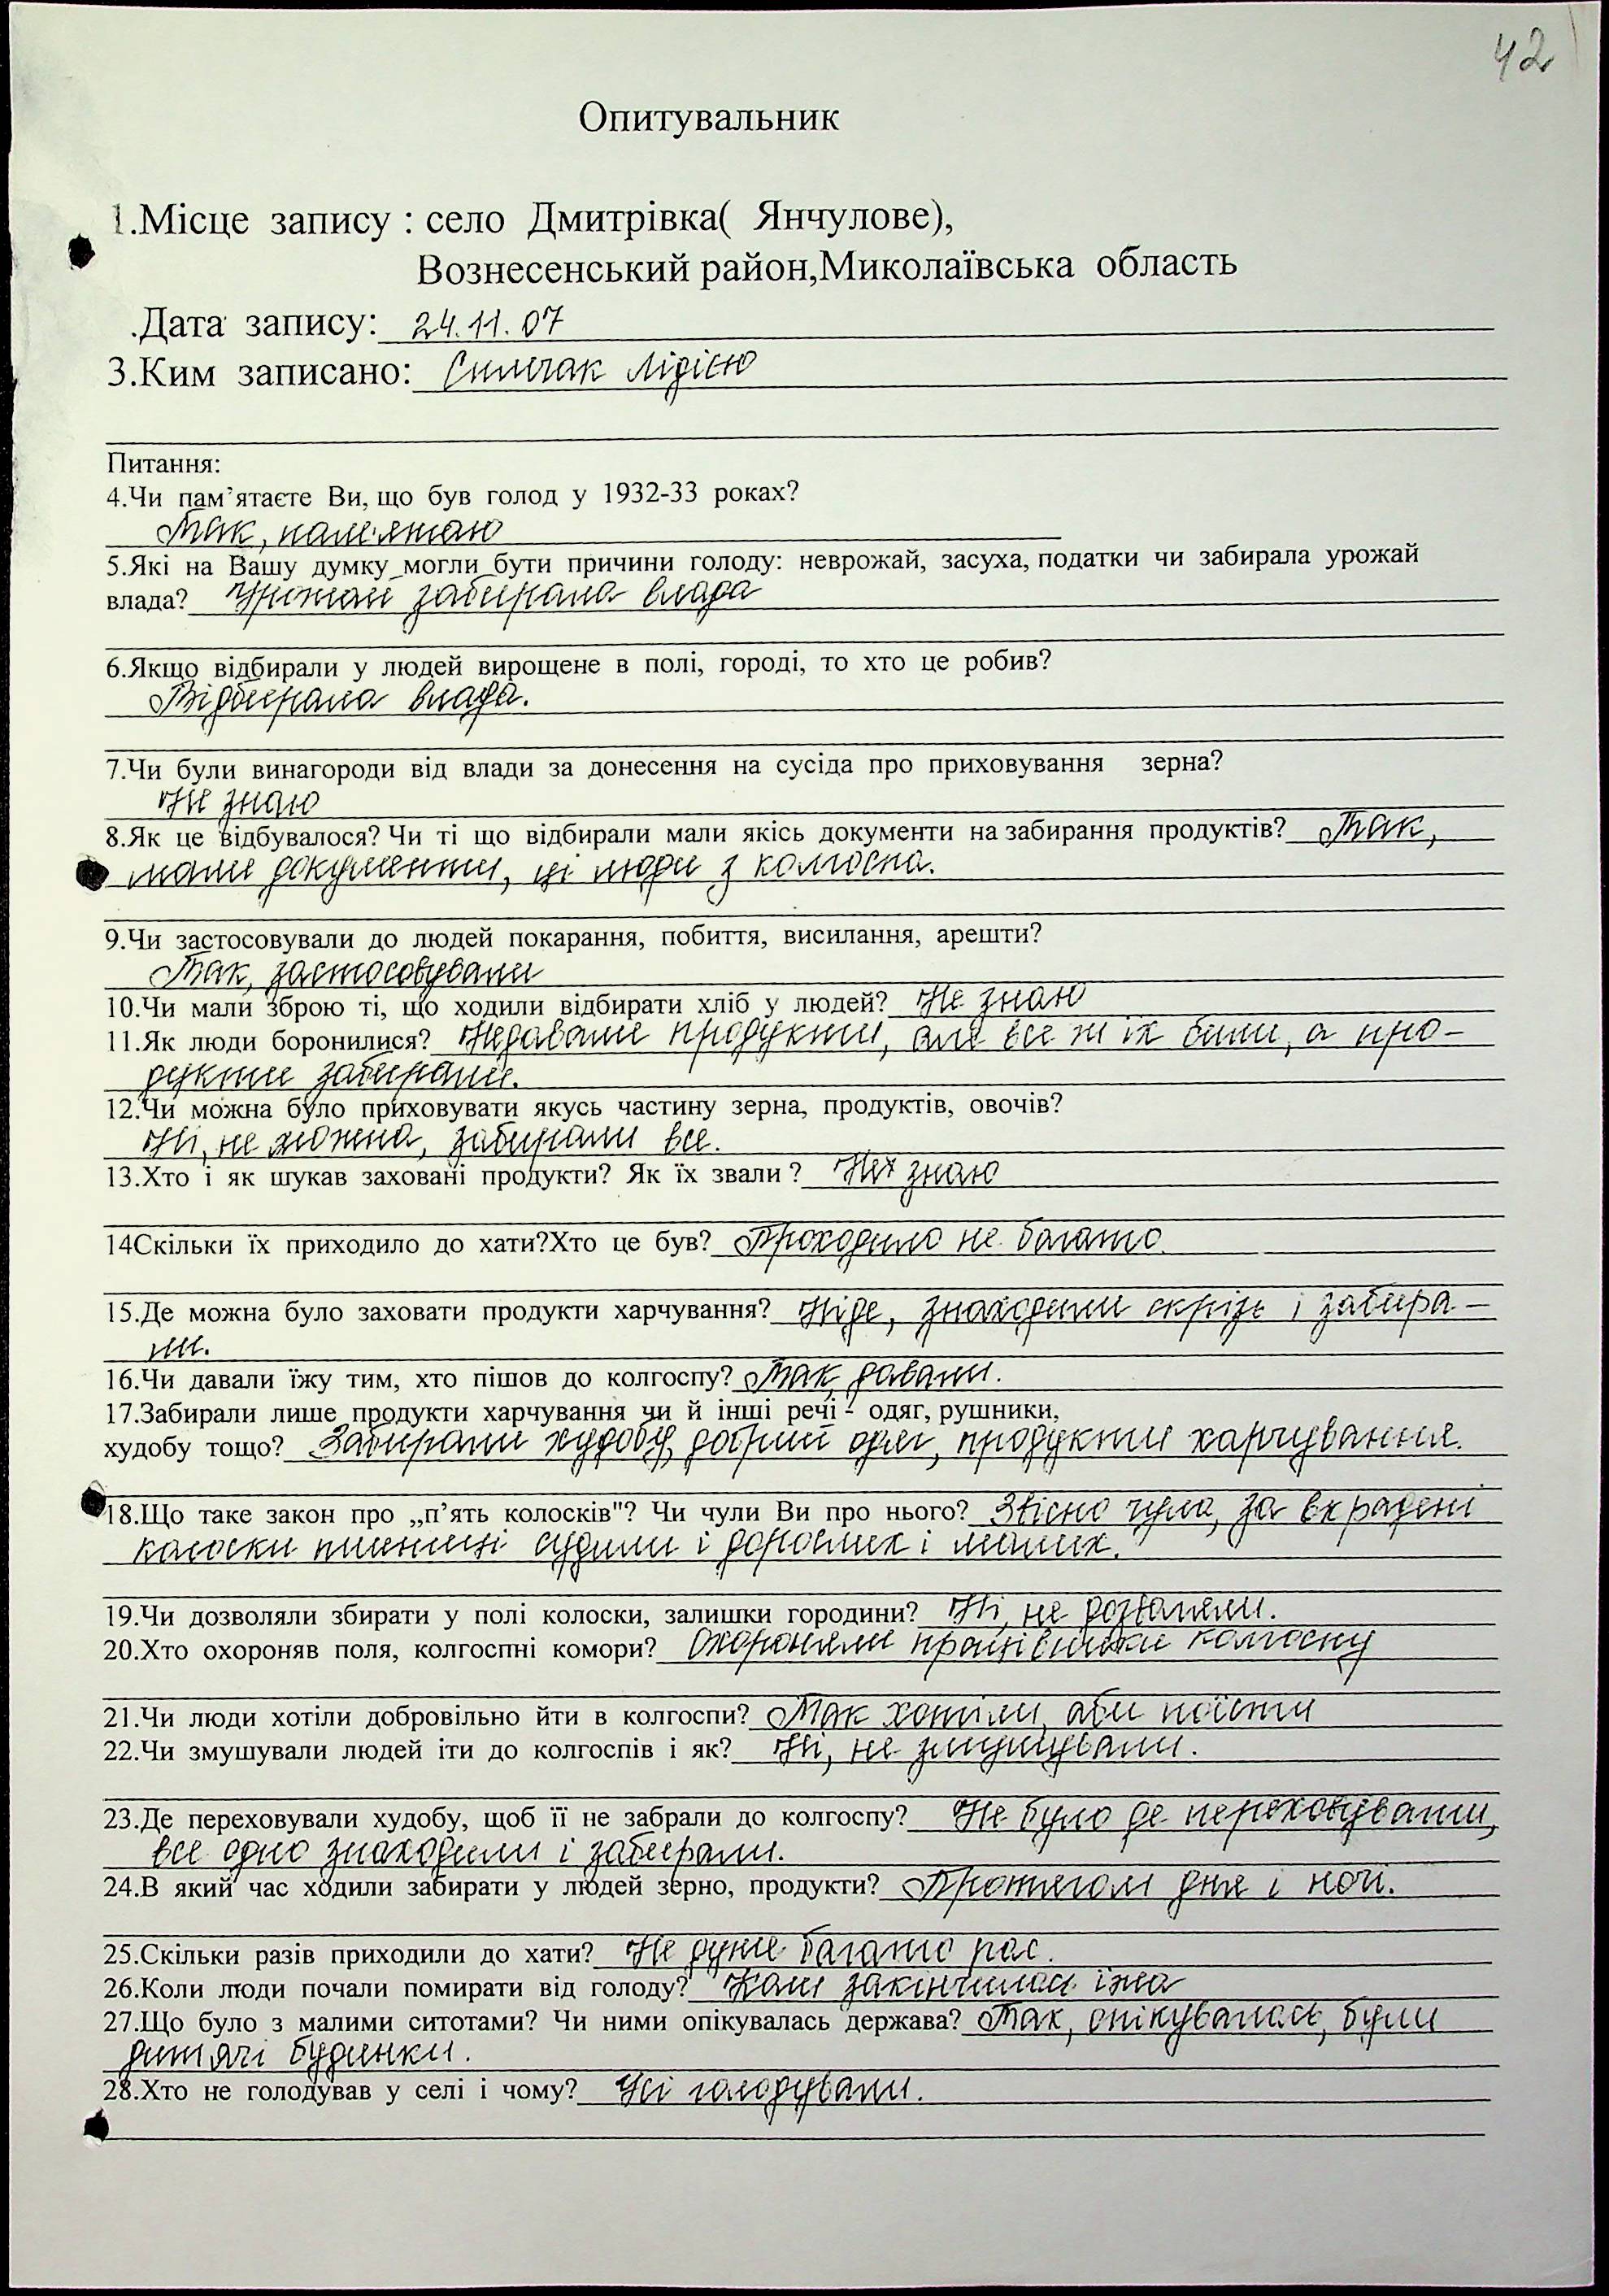 42
Опитувальник
1.Місце запису : село Дмитрівка( Янчулове),
Вознесенський район,Миколаївська область
.Дата запису: 24.11.07
3.Ким записано: Лідією
Питання:
4.Чи пам’ятаєте Ви, що був голод у 1932-33 роках?
Так, пам'ятаю
5.Які на Вашу думку могли бути причини голоду: неврожай, засуха, податки чи забирала урожай
влада? Урожай забирала влада
6.Якщо відбирали у людей вирощене в полі, городі, то хто це робив?
Відбирала влада.
7.Чи були винагороди від влади за донесення на сусіда про приховування зерна?
Не знаю
8.Як це відбувалося? Чи ті що відбирали мали якісь документи на забирання продуктів? Так,
мали документи, ці люди з колгоспа.
9.Чи застосовували до людей покарання, побиття, висилання, арешти?
Так, застосовували
10.Чи мали зброю ті, що ходили відбирати хліб у людей? Не знаю
11.Як люди боронилися? Недавали продукти, але все ж їх били, а про-
дукти забирали.
12.Чи можна було приховувати якусь частину зерна, продуктів, овочів?
Ні, не можна, забирали все.
13.Хто і як шукав заховані продукти? Як їх звали ? Не знаю
14Скільки їх приходило до хати?Хто це був? Проходило не багато.
15.Де можна було заховати продукти харчування? Ніде, знаходили скрізь і забира-
ли.
16.Чи давали їжу тим, хто пішов до колгоспу? Так, давали.
17.Забирали лише продукти харчування чи й інші речі - одяг, рушники,
худобу тощо? Забирали худобу, добрий одяг, продукти харчування.
18.Що таке закон про „п’ять колосків"? Чи чули Ви про нього? Звісно чула, за вкрадені
колоски пшениці судили і дорослих і малих.
19.Чи дозволяли збирати у полі колоски, залишки городини? Ні, не дозволяли.
20.Хто охороняв поля, колгоспні комори? Охороняли працівники колгоспу
21.Чи люди хотіли добровільно йти в колгоспи? Так хотіли, аби поїсти
22.Чи змушували людей іти до колгоспів і як? Ні, не змушували.
23.Де переховували худобу, щоб її не забрали до колгоспу? Не було де переховувати,
все одно знаходили і забирали.
24.В який час ходили забирати у людей зерно, продукти? Протягом дня і ночі.
25.Скільки разів приходили до хати? Не дуже багато раз.
26.Коли люди почали помирати від голоду? Коли закінчилась їжа
27.Що було з малими ситотами? Чи ними опікувалась держава? Так, опікувалась, були
дитячі будинки.
28.Хто не голодував у селі і чому? Усі голодували.